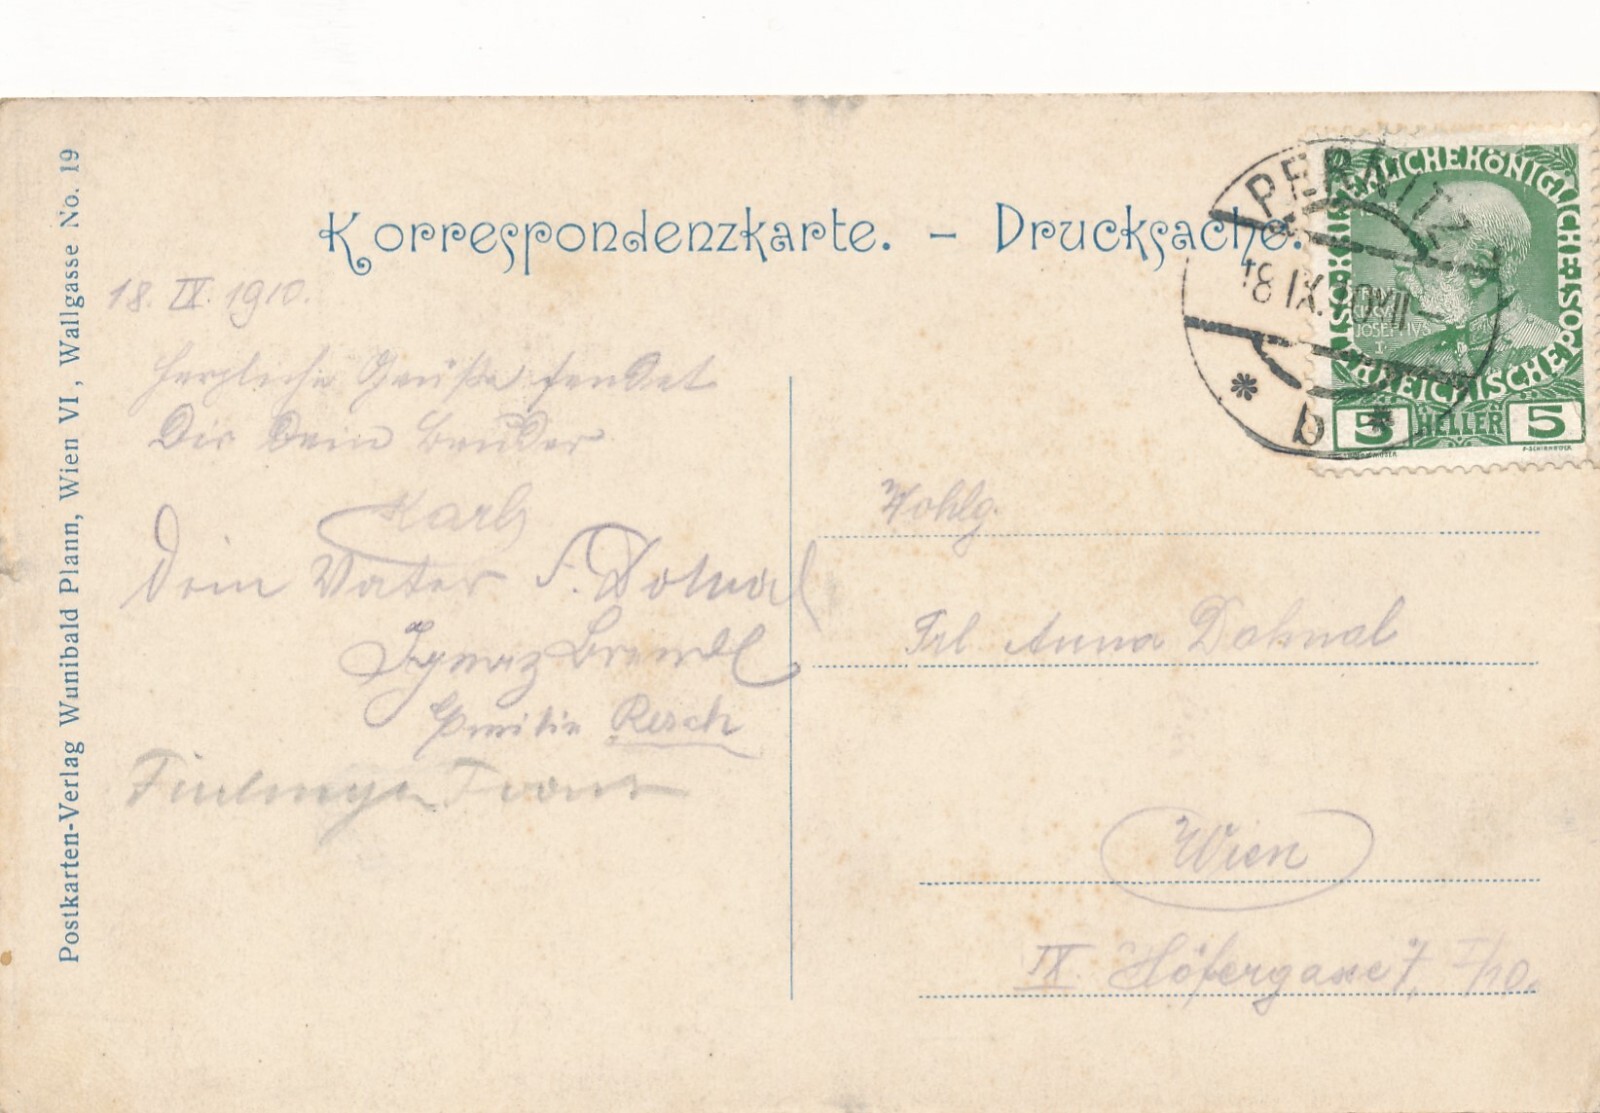 Korrespondenzkarte. – Drucksache.
Postkarten-Verlag Wunibald Plann, Wien VI, Wallgasse No. 19
18. IX. 1910.
Herzliche Grüße sendet
Dir Dein Bruder
Karl
Dein Vater F. Dohnal
Ignaz Brendl
Resch
Franz
PERNITZ
18 IX. 10 VII
* b *
KAISERLICHE KÖNIGLICHE ÖSTERREICHISCHE POST
FRANCISCVS JOSEPHVS I.
5 HELLER 5
Wohlg.
Frl. Anna Dohnal
Wien
IX. Höfergasse 7, I/10.